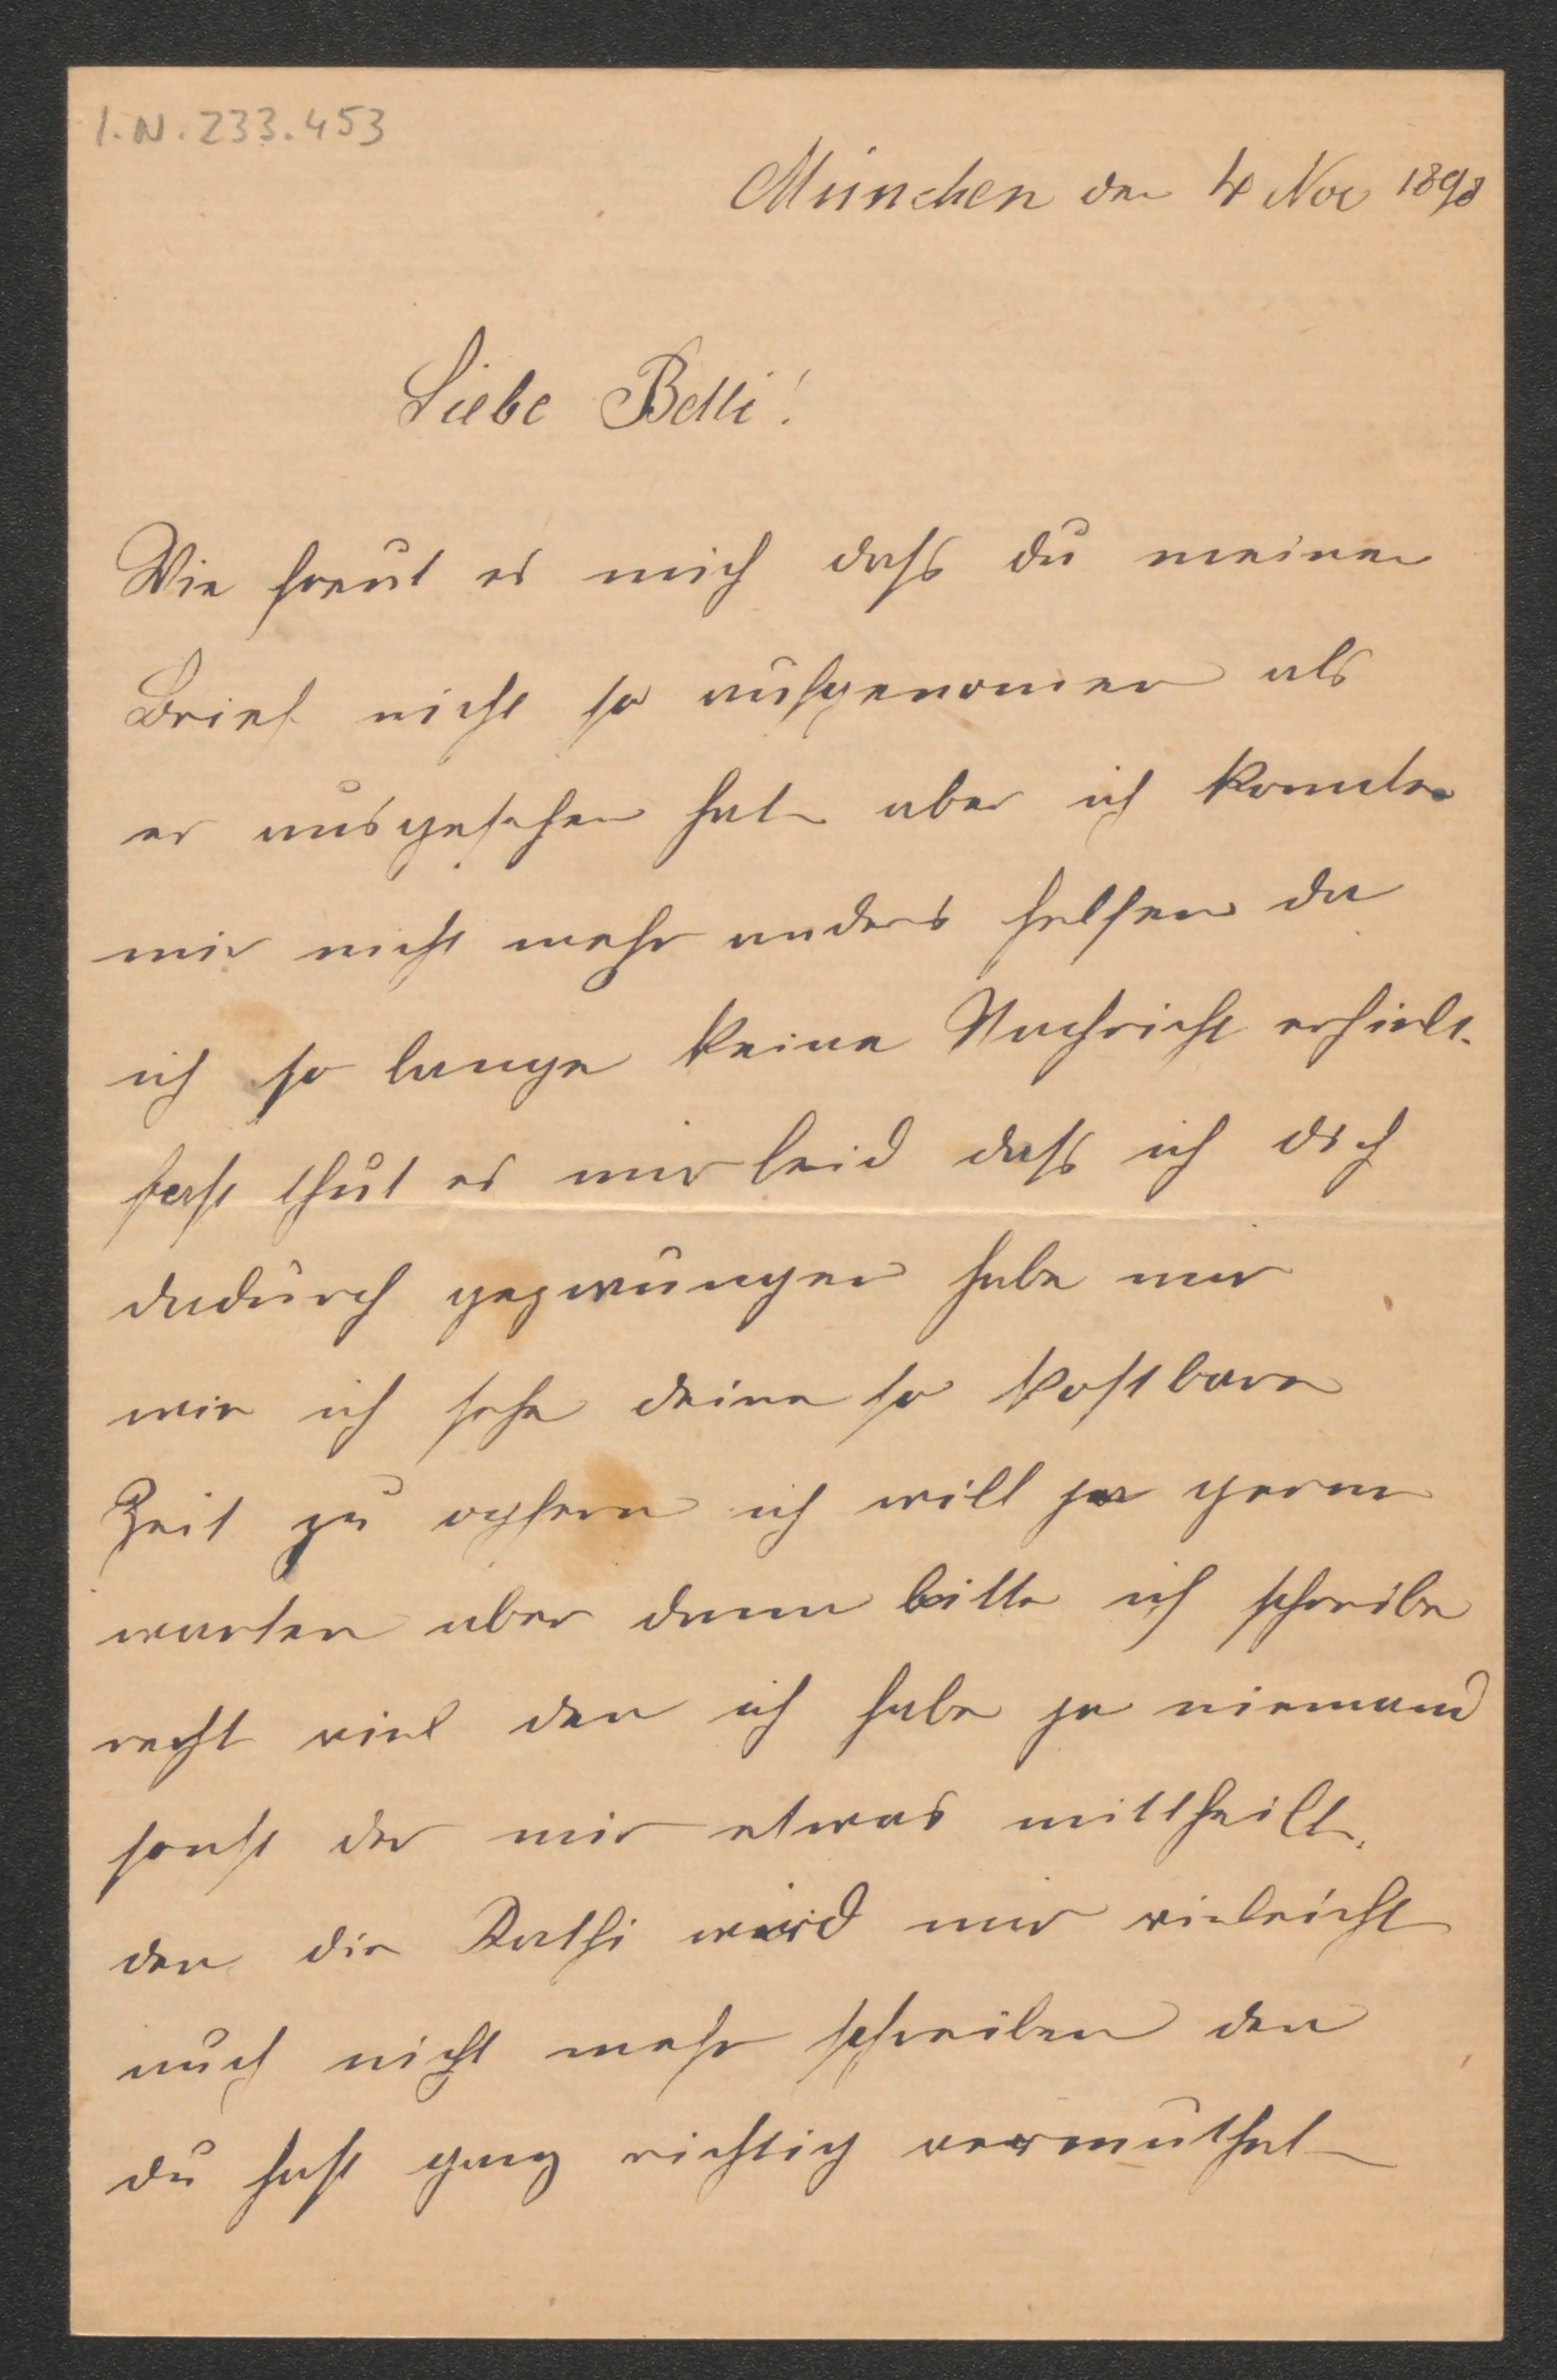 I.N. 233.453
München den 4 Nov 1898
Liebe Betti!
Wie freut es mich dass du meinen
Brief nicht so aufgenomen als
er ausgesehen hat aber ich konnte
mir nicht mehr anders helfen da
ich so lange keine Nachricht erhielt.
fast thut es mir leid dass ich dich
dadurch gezwungen habe mir
wie ich sehe deine so kostbare
Zeit zu opfern ich will ja gerne
warten aber dann bitte ich schreibe
recht viel den ich habe ja niemand
sonst der mir etwas mittheilt.
den die Kathi wird mir vieleicht
auch nicht mehr schreiben den
du hast ganz richtig vermuthet